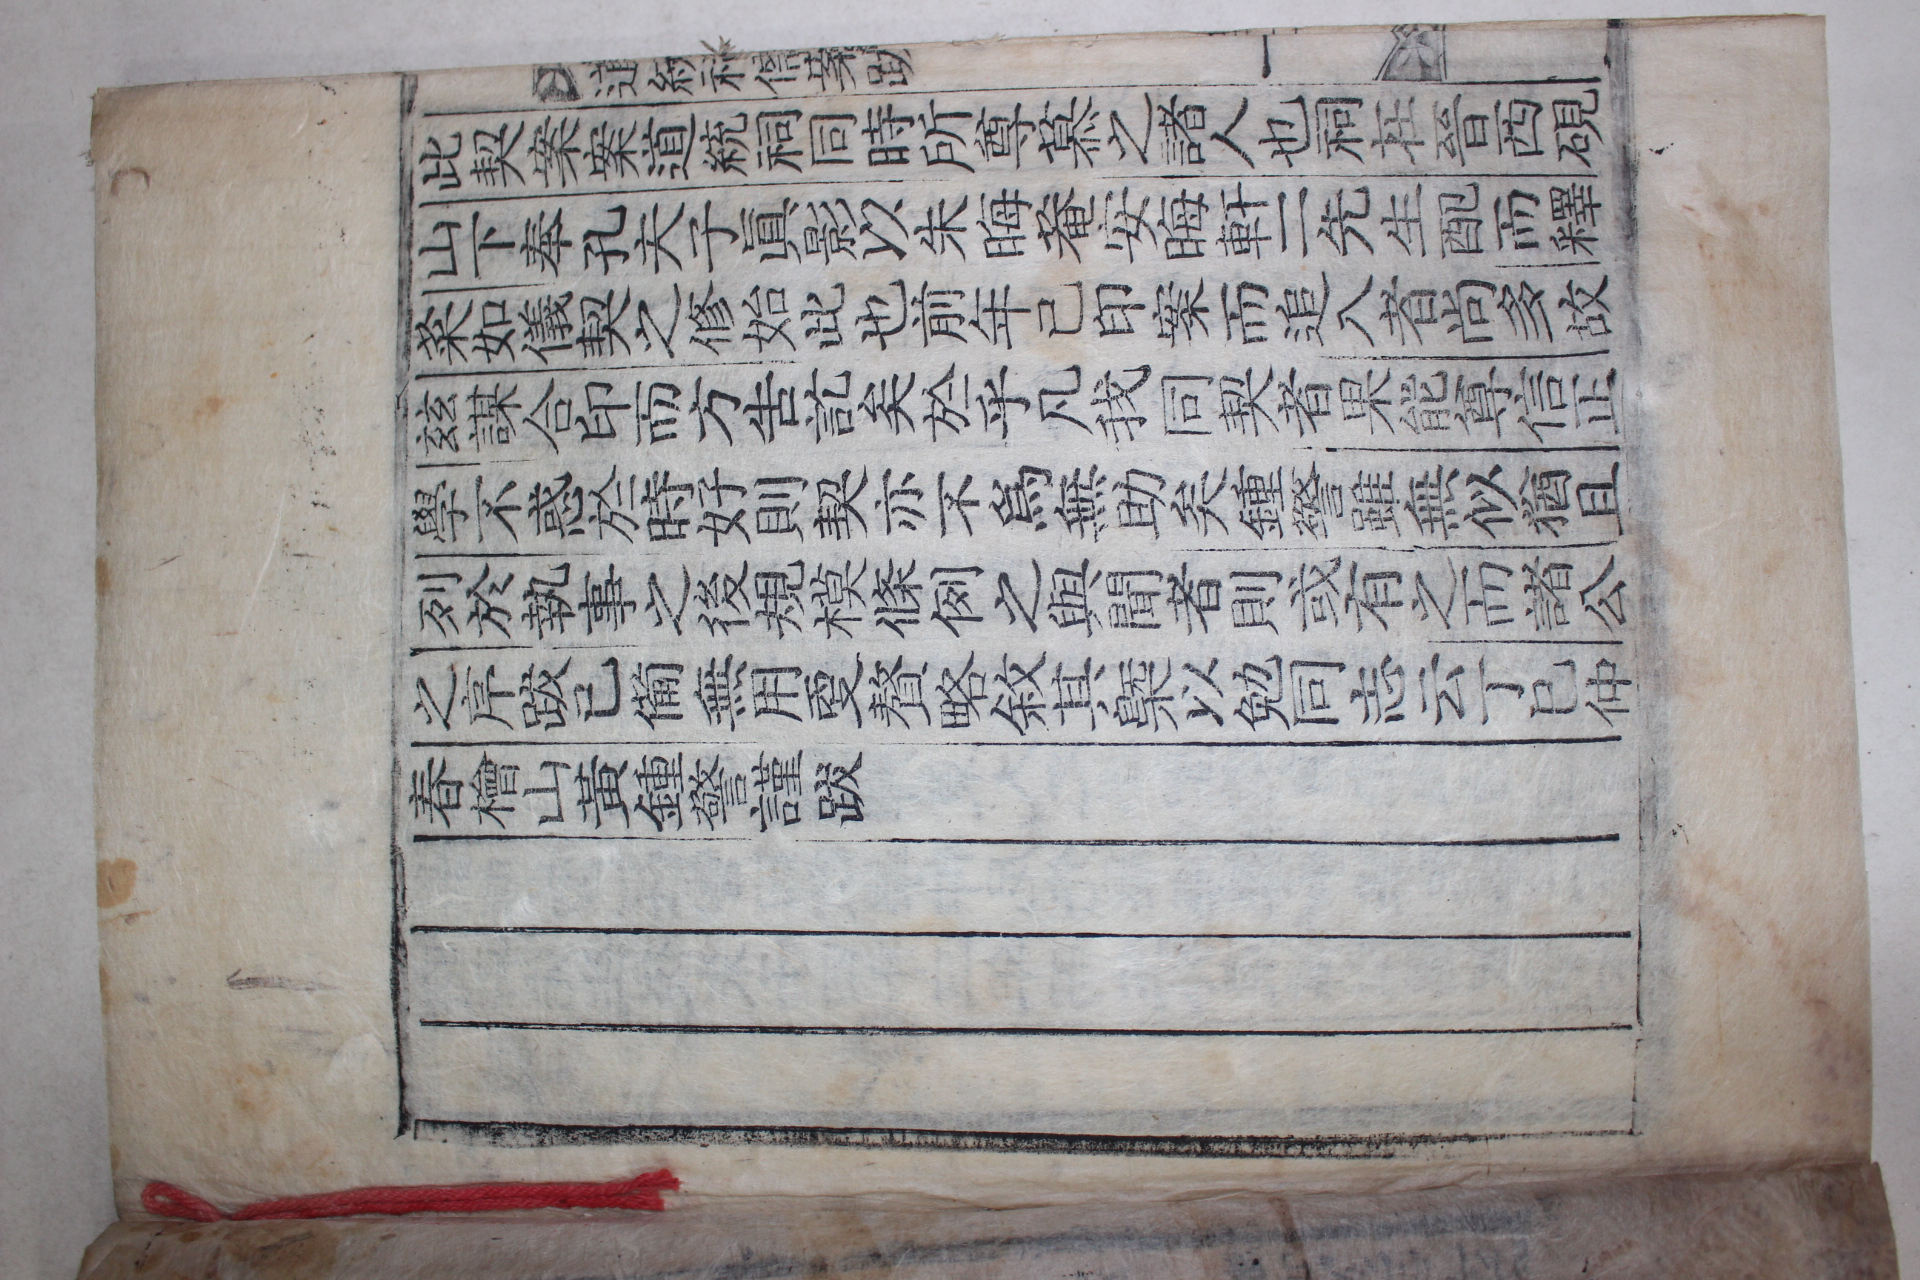 道統祠信案跋
此契案案道統祠同時所尊慕之諸人也祠在晉西硯
山下奉孔夫子眞影以朱晦菴安晦軒二先生配而釋
菜如儀契之修始此也前年已印案而追入者尚多故
玆謀合印而方告訖矣於乎凡我同契者果能尊信正
學不惑於時好則契亦不爲無助矣鍾警雖無似猶且
列於執事之後規模條例之與聞者則或有之而諸公
之序跋已備無用更贅略敘其槩以勉同志云丁巳仲
春檜山黃鍾警謹跋